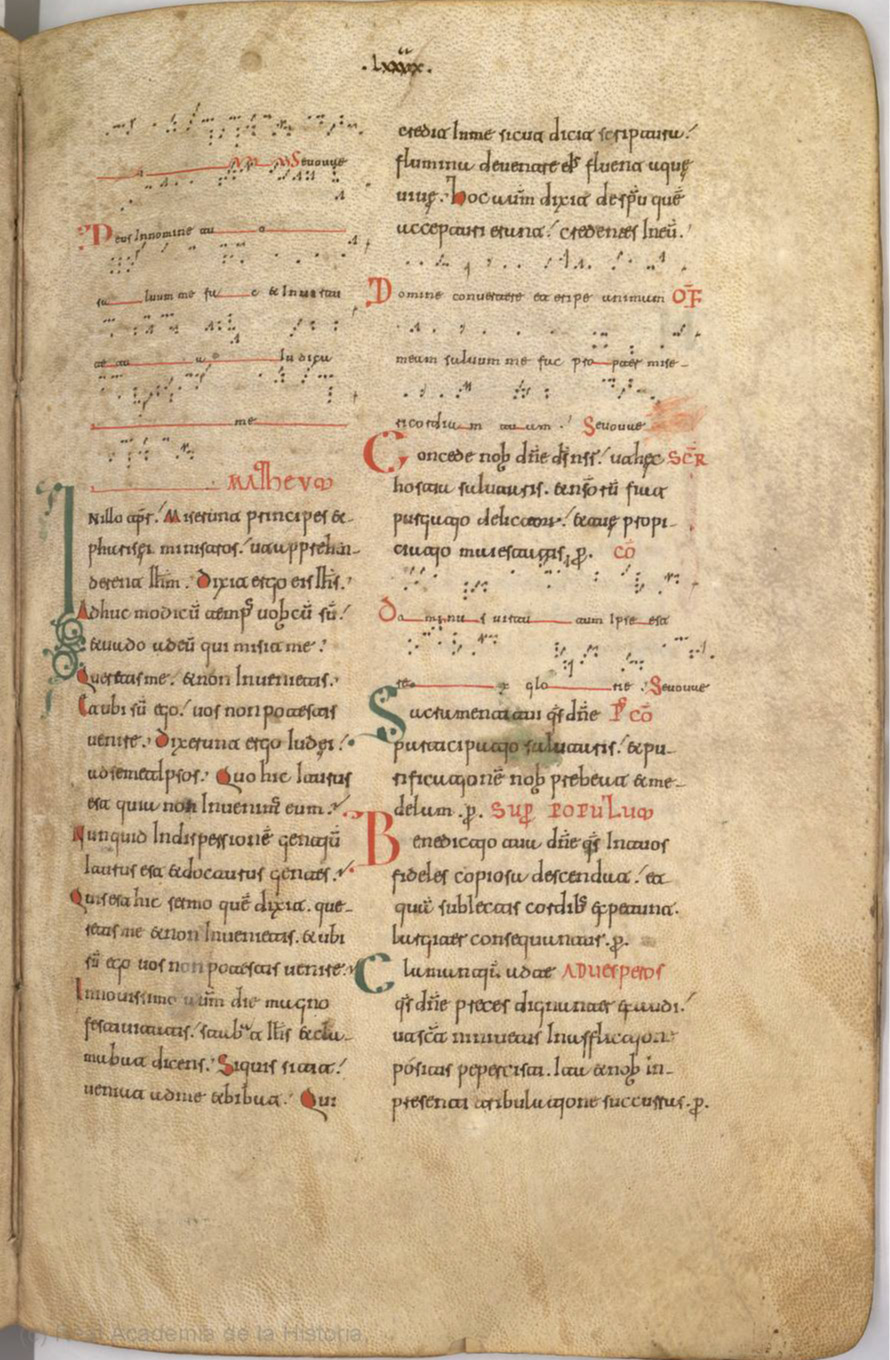 .lxxxix.
Seuouae
Deus In nomine tu o
sa luum me fa c & In uirtu
te tu a o Iudica
me
MATHEUM
IN illo tp̄r. Miserunt principes &
pharisęi ministros. ut apprehen-
derent Ih̄m. Dixit ergo eis Ih̄s.
Adhuc modicū temp' uobcū sū.
& uado ad eū qui misit me.
Queretis me. & non Inuenietis.
Et ubi sū ego. uos non potestis
uenire. Dixerunt ergo Iudęi.
ad semetipsos. Quo hic Iturus
est quia non Inueniem' eum.
Nunquid In dispersionē gentiū
Iturus est & docturus gentes.
Quis est hic sermo quē dixit. que-
retis me & non Inuenietis. & ubi
sū ego uos non potestis uenire.
In nouissimo aūm die magno
festiuitatis. stabat Ih̄s & cla-
mabat dicens. Siquis sitit.
ueniat ad me & bibat. Qui
credit In me sicut dicit scriptura.
flumina de uentre ei' fluent aquę
uiuę. Hoc aūm dixit de sp̄u quē
accepturi erant. credentes In eū.
Domine conuertere et eripe animam OF̄
meam saluum me fac pro pter mise-
ricordia m tu um. Seuouae
Concede nob dn̄e ds̄ nr̄. ut hęc SCR̄
hostia salutaris. & nr̄orū fiat
purgatio delictorū. & tuę propi-
tiatio maiestatis. p. CŌ
Do minu s uirtu tum Ipse est
re x glo rie. Seuouae
Sacramenti tui qs̄ dn̄e P CŌ
participatio salutaris. & pu-
rificationē nob prebeat & me-
delam. p. SUP POPULUM
Benedictio tua dn̄e qs̄ In tuos
fideles copiosa descendat. et
quā subiectis cordib' expetunt.
largiter consequantur. p.
AD UESPEROS
qs̄ dn̄e preces dignanter exaudi.
ut sc̄a
presenti tribulatione succurras. p.